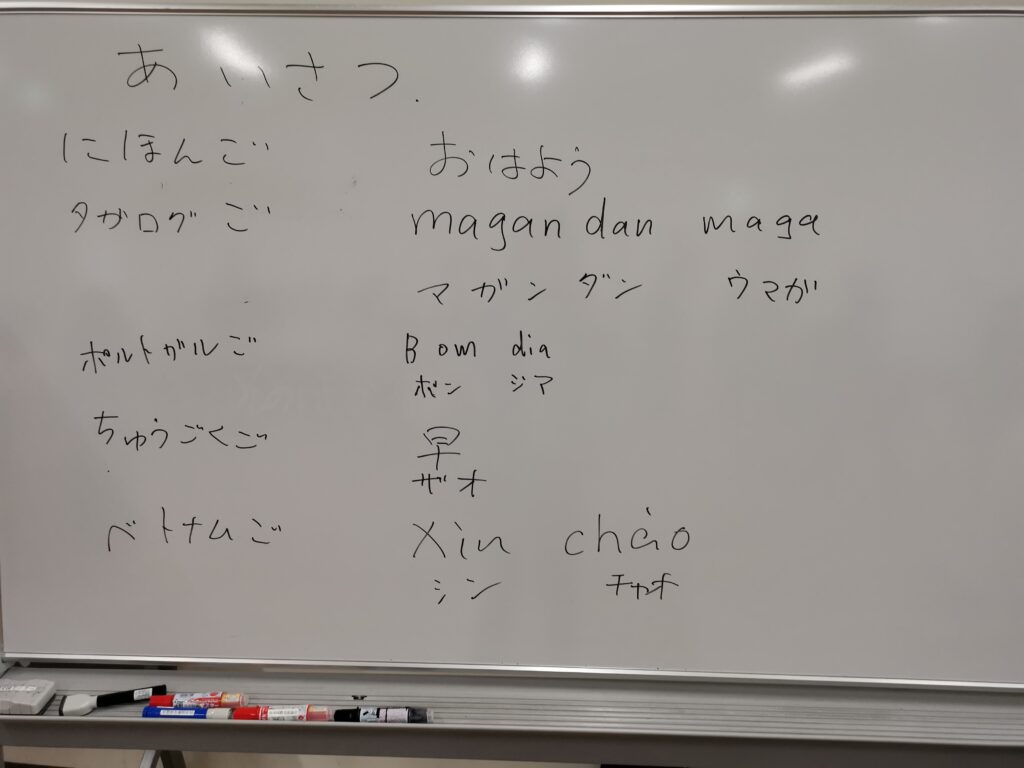 あいさつ.
にほんご おはよう
タガログご magan dan maga
マガンダン ウマガ
ポルトガルご Bom dia
ボン ジア
ちゅうごくご 早
ザオ
ベトナムご Xin chào
シン チャオ